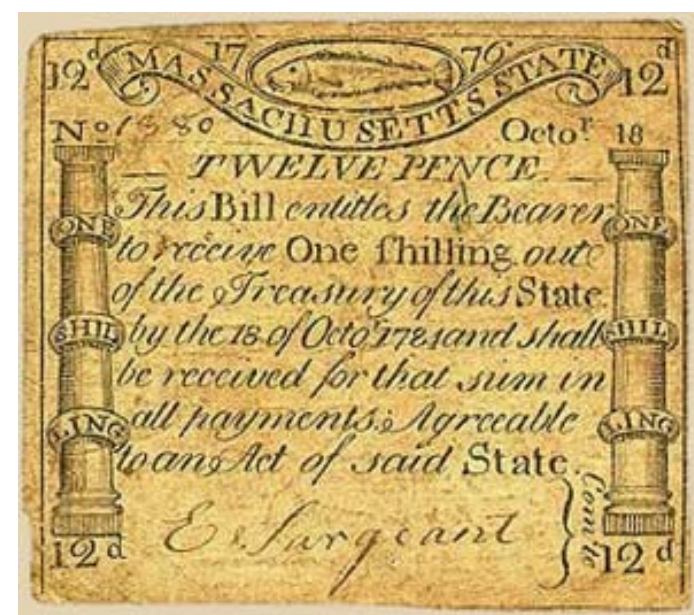 12d 17 76 12d
MASSACHUSETTS STATE
No 1380 Octor 18
TWELVE PENCE.
This Bill entitles the Bearer
to receive One ſhilling out
of the Treasury of this State
by the 18 of Octor 1784 and shall
be received for that sum in
all payments; Agreeable
to an Act of said State.
ONE ONE
SHIL SHIL
LING LING
E Sargeant
Comte
12d 12d